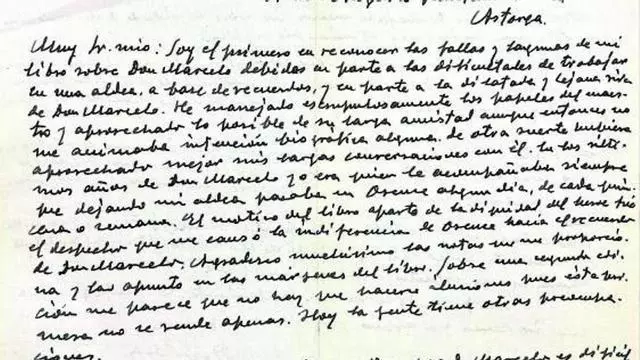 Astorga.
Muy Sr. mio: Soy el primero en reconocer las fallas y lagunas de mi
libro sobre Don Marcelo debidas en parte a las dificultades de trabajar
en una aldea, a base de recuerdos, y en parte a la dilatada y lejana vida
de Don Marcelo. He manejado escrupulosamente los papeles del maes-
tro y aprovechado lo posible de su larga amistad aunque entonces no
me animaba intención biográfica alguna. De otra suerte hubiera
aprovechado mejor mis largas conversaciones con él. En los últi-
mos años de Don Marcelo yo era quien le acompañaba siempre
que dejando mi aldea pasaba en Orense algun dia, de cada quin-
cena o semana. El motivo del libro aparte de la dignidad del
el despecho que me causó la indiferencia de Orense hacia el recuerdo
de Don Marcelo. Agradezco muchísimo las notas que me proporcio-
na y las apunto en las márgenes del libro. Sobre una segunda edi-
ción me parece que no hay que hacerse ilusiones pues esta pri-
mera no se vende apenas. Hoy la gente tiene otras preocupa-
ciones.
Marcelo es difícil